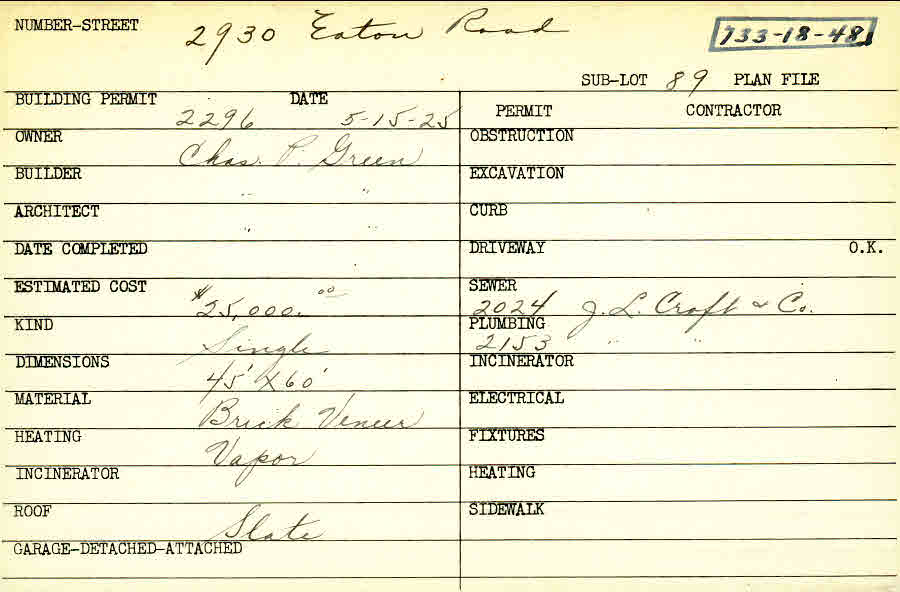 NUMBER-STREET 2930 Eaton Road 733-18-48
SUB-LOT 89 PLAN FILE
BUILDING PERMIT 2296 DATE 5-15-25
OWNER Chas. P. Green
BUILDER " "
ARCHITECT " "
DATE COMPLETED
ESTIMATED COST $25,000.00
KIND Single
DIMENSIONS 45' X 60'
MATERIAL Brick Veneer
HEATING Vapor
INCINERATOR
ROOF Slate
GARAGE-DETACHED-ATTACHED
PERMIT CONTRACTOR
OBSTRUCTION
EXCAVATION
CURB
DRIVEWAY O.K.
SEWER 2024 J. L. Croft & Co.
PLUMBING 2153 " "
INCINERATOR
ELECTRICAL
FIXTURES
HEATING
SIDEWALK